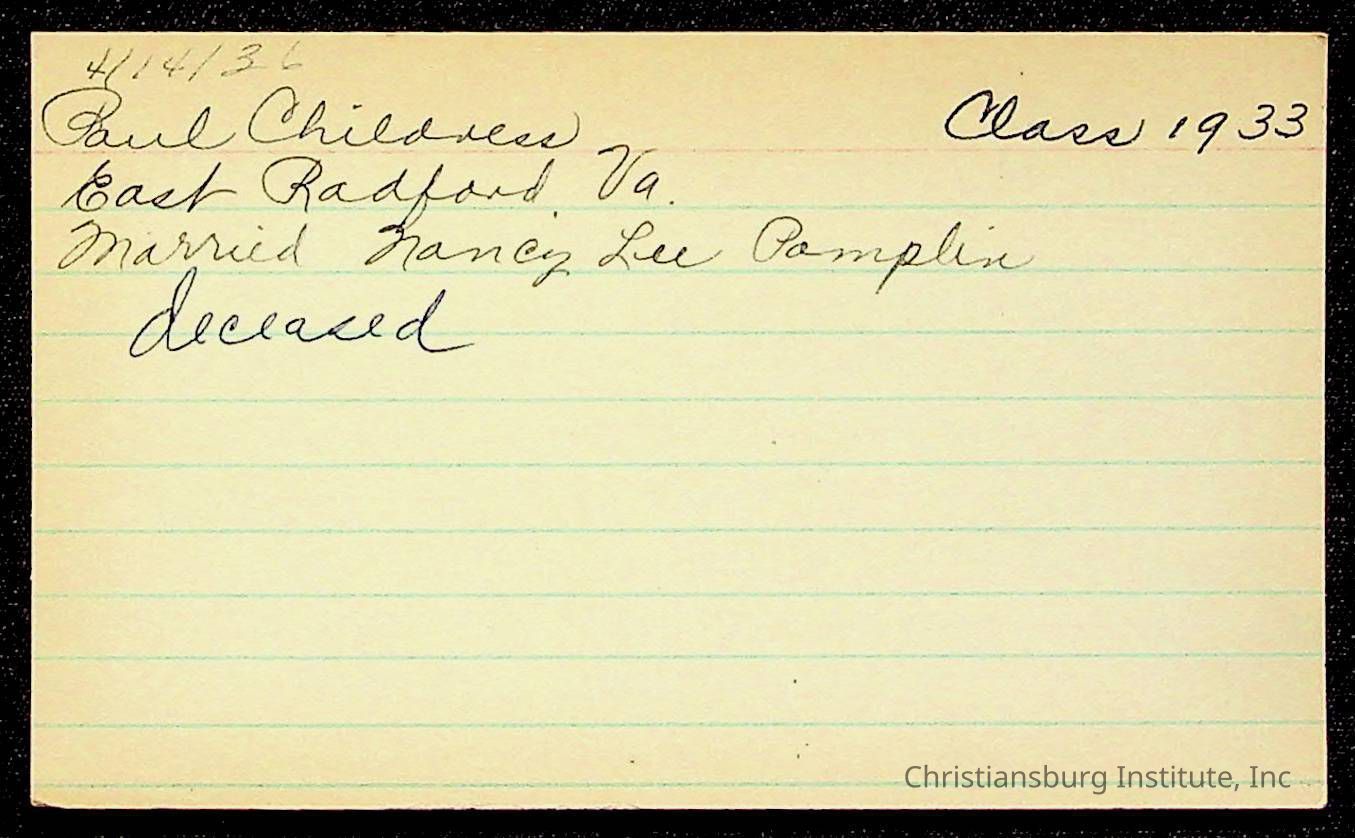 4/14/36
Paul Childress Class 1933
East Radford Va.
Married Nancy Lee Pamplin
deceased
Christiansburg Institute, Inc